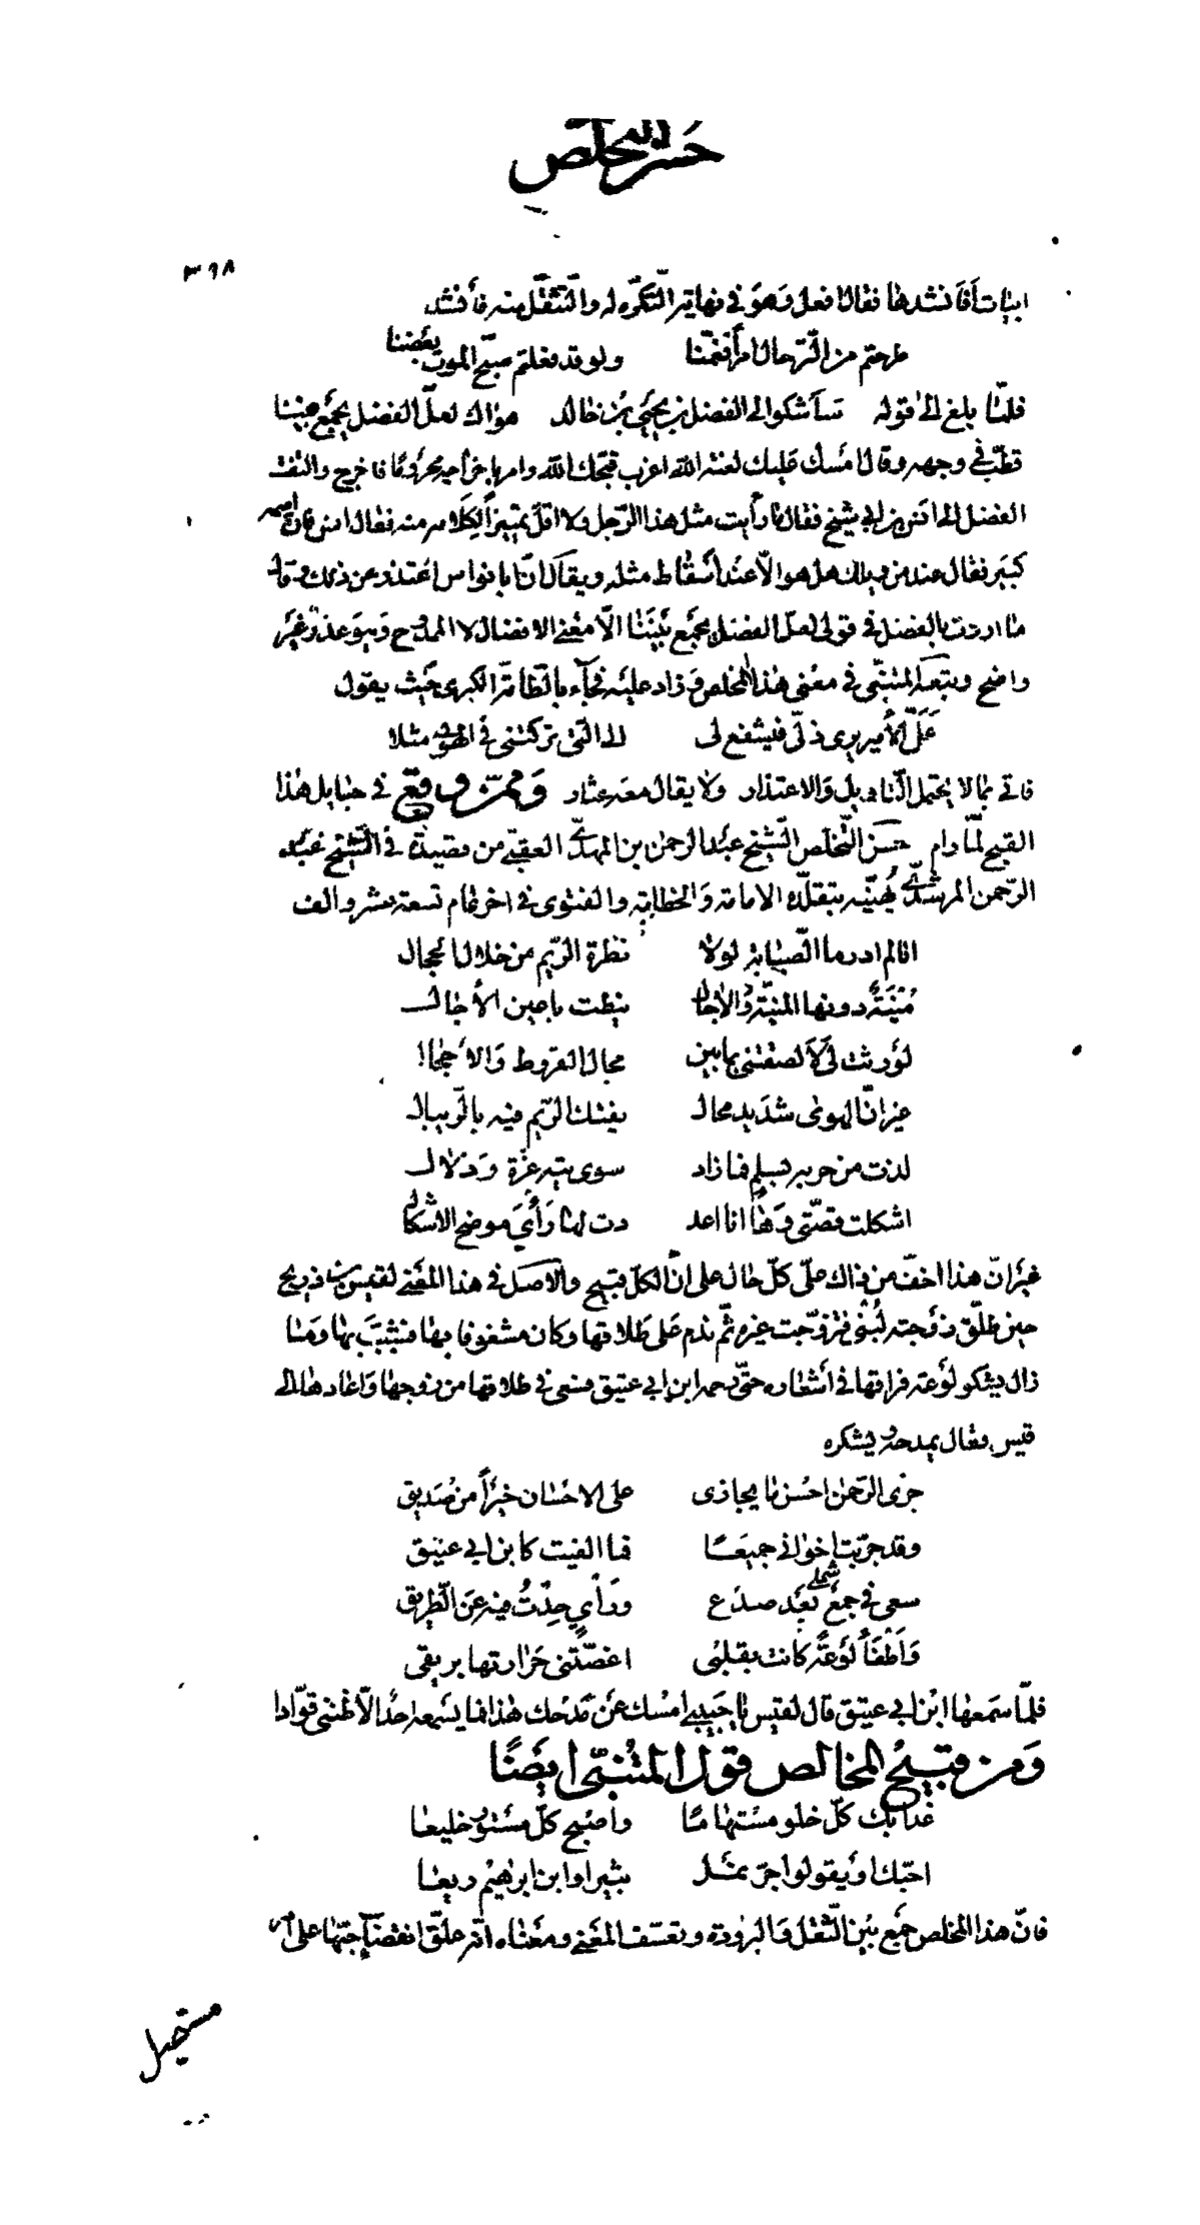 حسن التخلص
٣٦٨
ابيات أفأنشدها فقال افعل وهو في نهاية التكرّه له والتثقّل منه فأنشد
طرحتم من الترحال أمراً فغمّنا ولو قد فعلتم صبّح الموت بعضنا
فلمّا بلغ إلى قوله سأشكو الى الفضل بن يحيى بن خالد هواك لعلّ الفضل يجمع بيننا
قطّب في وجهه وقال امسك عليك لعنة الله اعزب قبّحك الله وامر باخراجه محروما فاخرج والتفت
الفضل الى انس بن ابي شيخ فقال ما رأيت مثل هذا الرّجل ولا اقلّ تمييزاً لكلامه منه فقال انس فان اسمه
كبير فقال عند من ويلك هل هو الّا عند أسقاط مثله ويقال انّ ابا نواس اعتذر عن ذلك وقال
ما اردت بالفضل في قولي لعلّ الفضل يجمع بيننا الّا معنى الافضال لا الممدوح وهو عذر غير
واضح وتبعه المتنبّي في معنى هذا المخلص وزاد عليه فجآء بالطّامّة الكبرى حيث يقول
عَلَّ الأمير يرى ذلّي فيشفع لي الى الّتي تركتني في الهوى مثلا
فاتى بما لا يحتمل التّاويل والاعتذار ولا يقال معه عثار وممّن وقع في حبايل هذا
القبيح لمّا رام حسن التّخلص الشّيخ عبد الرحمن بن المهديّ العقبيّ من قصيدة في الشّيخ عبد
الرّحمن المرشديّ يُهنّيه بتقلّده الامامة والخطابة والفتوى في اخر عام تسعة عشر والف
انا لم ادر ما الصّبابة لولا نظرة الرّيم من خلال الحجال
مُنية دونها المنيّة والآجال نيطت باعين الأجال
لو رثت لي لألصقتني بما بين مجال القروط والأحجال
غير انّ الهوى شديد محال يفتك الرّيم فيه بالرّيبال
لذت من حربه بسلم فما زاد سوى تيه عزّة ودلال
اشكلت قصّتي وها انا اعد دت لها رأي موضح الاشكال
غير انّ هذا اخفّ من ذاك على كلّ حال على انّ الكلّ قبيح والاصل في هذا المعنى لقيس بن ذريح
حين طلّق زوجته لُبنى فتزوّجت غيره ثمّ ندم على طلاقها وكان مشغوفا بها فشبّب بها وما
زال يشكو لوعة فراقها في أشعاره حتّى رحمه ابن ابي عتيق فسعى في طلاقها من زوجها واعادها الى
قيس وقال يمدحه ويشكره
جزى الرّحمن احسن ما يجازي على الاحسان خيراً من صديق
وقد جرّبت اخواني جميعًا فما الفيت كابن ابي عتيق
سعى في جمع شملي بعد صدع ورأيٍ حِدْتُ فيه عن الطّريق
وأطفأ لوعة كانت بقلبي اغصّتني حرارتها بريقي
فلمّا سمعها ابن ابي عتيق قال لقيس يا حبيبي امسك عن مدحك هذا فما يسمعه احد الّا ظنّني قوّادا
ومن قبيح المخالص قول المتنبّي ايضًا
غدا بك كلّ خلو مستهامًا واصبح كلّ مستور خليعا
احبّك او يقولوا جرّ نمل ثبيرا وابن ابراهيم ريعا
فانّ هذا المخلص جمع بين الثّقل والبرودة وتعسّف المعنى ومعناه انّه علّق انقضآء حبّها على امر
مستحيل